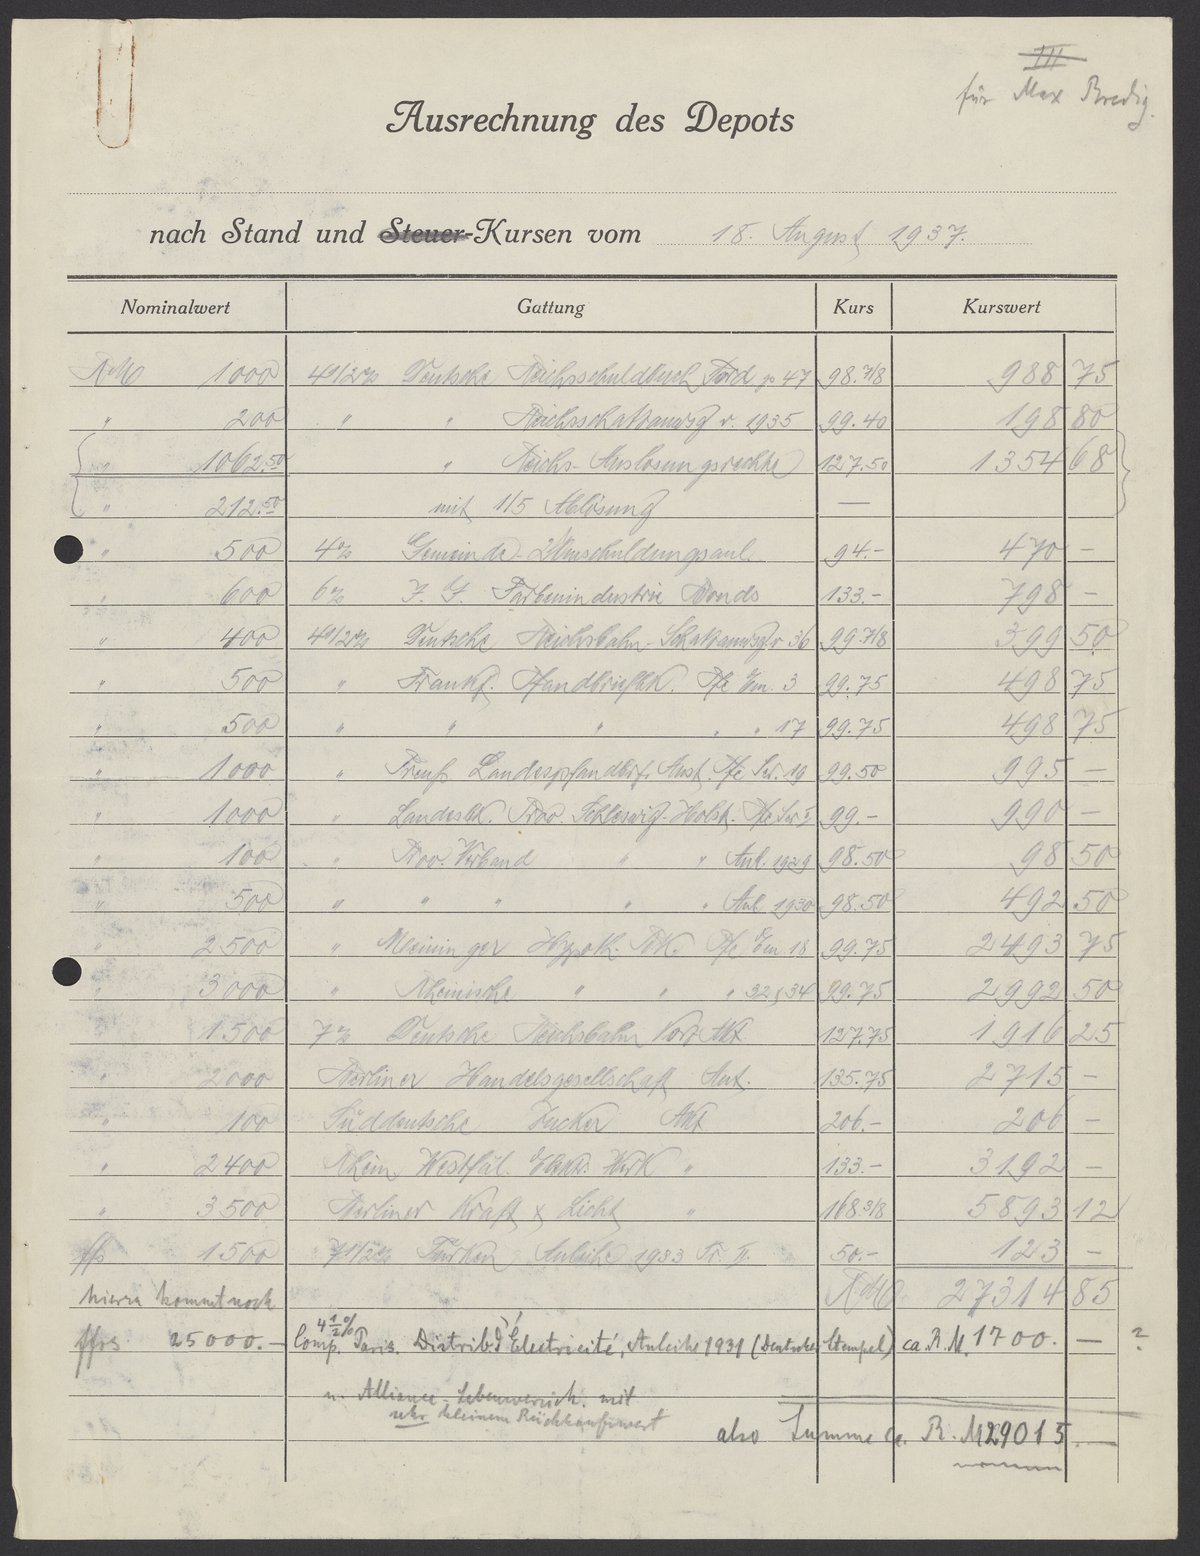 III
für Max Bredig.
Ausrechnung des Depots
nach Stand und Steuer-Kursen vom 18. August 1937.
Nominalwert Gattung Kurs Kurswert
RM 1000 4 1/2% Deutsche Reichsschuldbuch Ford p 47 98.7/8 988 75
" 200 " " Reichsschatzanwsg v. 1935 99.40 198 80
" 1062.50 " Reichs-Auslosungsrechte 127.50 1354 68
" 212.50 mit 1/5 Ablösung —
" 500 4% Gemeinde-Umschuldungsanl. 94.- 470 —
" 600 6% I. G. Farbenindustrie Bonds 133.- 798 —
" 400 4 1/2% Deutsche Reichsbahn-Schatzanwsg. v 36 99.7/8 399 50
" 500 " Frankf. Pfandbriefbk. Pfe Em. 3 99.75 498 75
" 500 " " " " " 17 99.75 498 75
" 1000 " Preuß Landespfandbrf. Anst. Pfe Ser. 19 99.50 995 —
" 1000 " Landesbk. Prov. Schleswig-Holst. Pfe Ser I 99.- 990 —
" 100 " Prov. Verband " " Anl. 1929 98.50 98 50
" 500 " " " " " Anl. 1930 98.50 492 50
" 2500 " Meininger Hypoth. Bk. Pfe Em. 18 99.75 2493 75
" 3000 " Rheinische " " " 32 & 34 99.75 2992 50
" 1500 7% Deutsche Reichsbahn Vorz Akt 127.75 1916 25
" 2000 Berliner Handelsgesellschaft Ant. 135.75 2715 —
" 100 Süddeutsche Zucker Akt 206.- 206 —
" 2400 Rhein Westfäl. Elektr. Werk " 133.- 3192 —
" 3500 Berliner Kraft & Licht " 168.3/8 5893 12
ffs 1500 7 1/2% Türken Anleihe 1933 Tr. II. 50.- 123 —
RM 27314 85
hierzu kommt noch
ffrs 25000.— 4 1/2% Comp. Paris. Distrib. d'Electricité, Anleihe 1931 (Deutscher Stempel) ca. R.M. 1700. — ?
u. Alliance-Lebensversich. mit
sehr kleinem Rückkaufswert
also Summe ca. R. M 29015.—